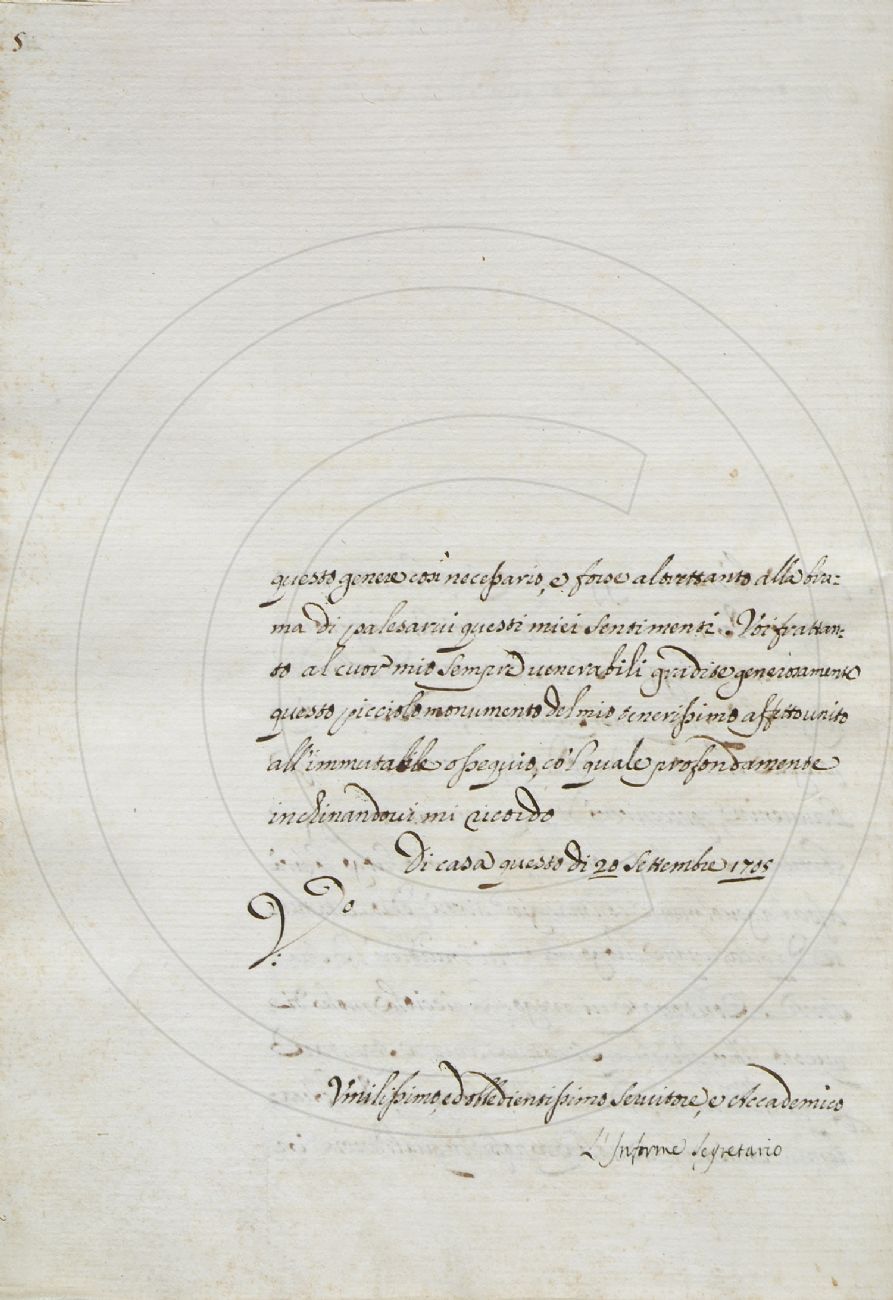 5
questo genere così necessario, e forse altrettanto alla bra-
ma di palesarvi questi miei sentimenti. Voi frattan-
to al cuor mio sempre venerabili gradite generosamente
questo picciolo monumento del mio tenerissimo affetto unito
all'immutabile ossequio, co'l quale profondamente
inchinandovi mi ricordo
Di casa questo dì 20 Settembre 1705
V:
Umilissimo, ed obbedientissimo Servitore, e Accademico
L'Informe Segretario